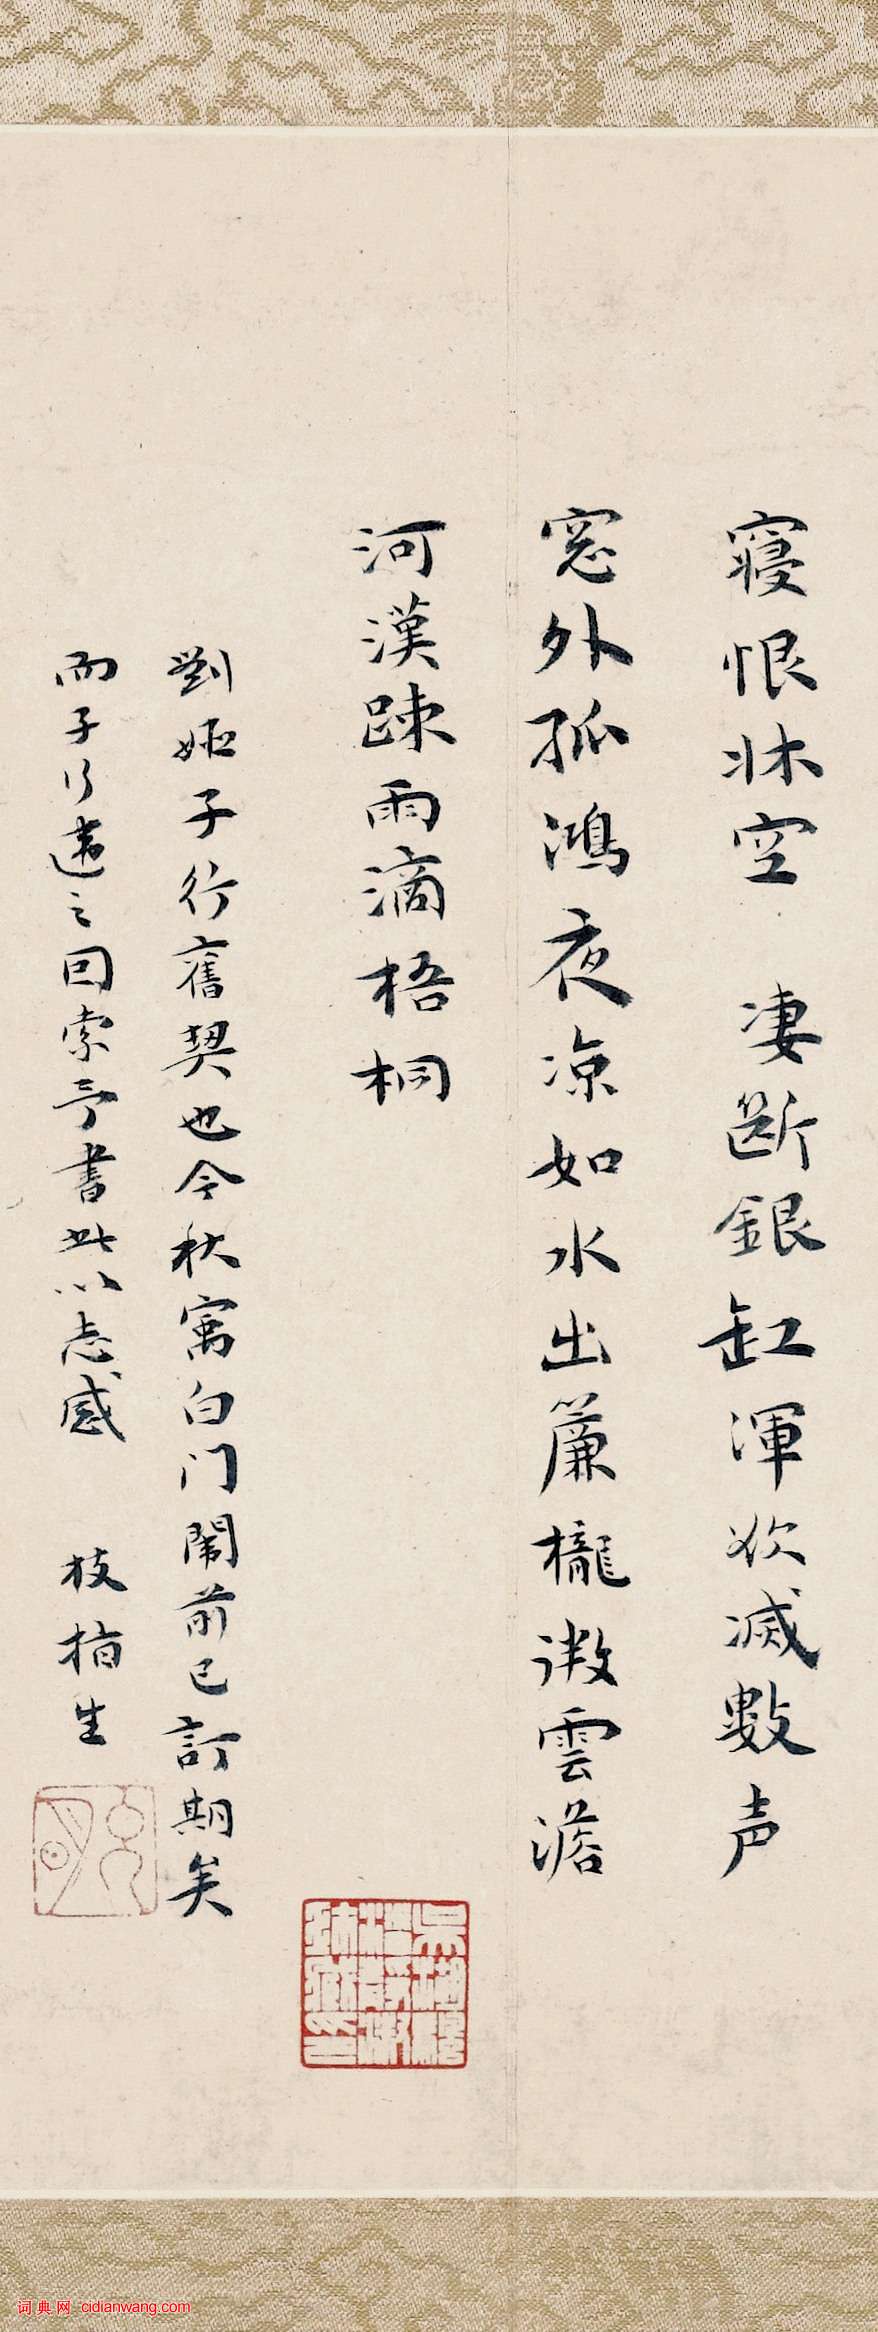 寢恨牀空 凄斷銀缸渾欲滅數声
窓外孤鴻夜凉如水出簾櫳微雲澹
河漢踈雨滴梧桐
劉姬子行舊契也今秋寓白门鬧前已訂期矣
而子行違之因索予書此以志感 枝指生
词典网 cidianwang.com